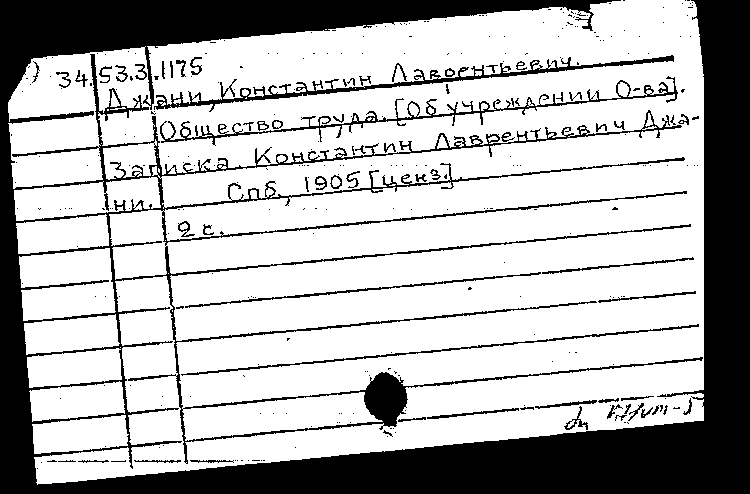 34.53.3.1175
Джани, Константин Лаврентьевич.
Общество труда. [Об учреждении О-ва].
Записка. Константин Лаврентьевич Джа-
ни. Спб., 1905 [ценз.].
2 с.